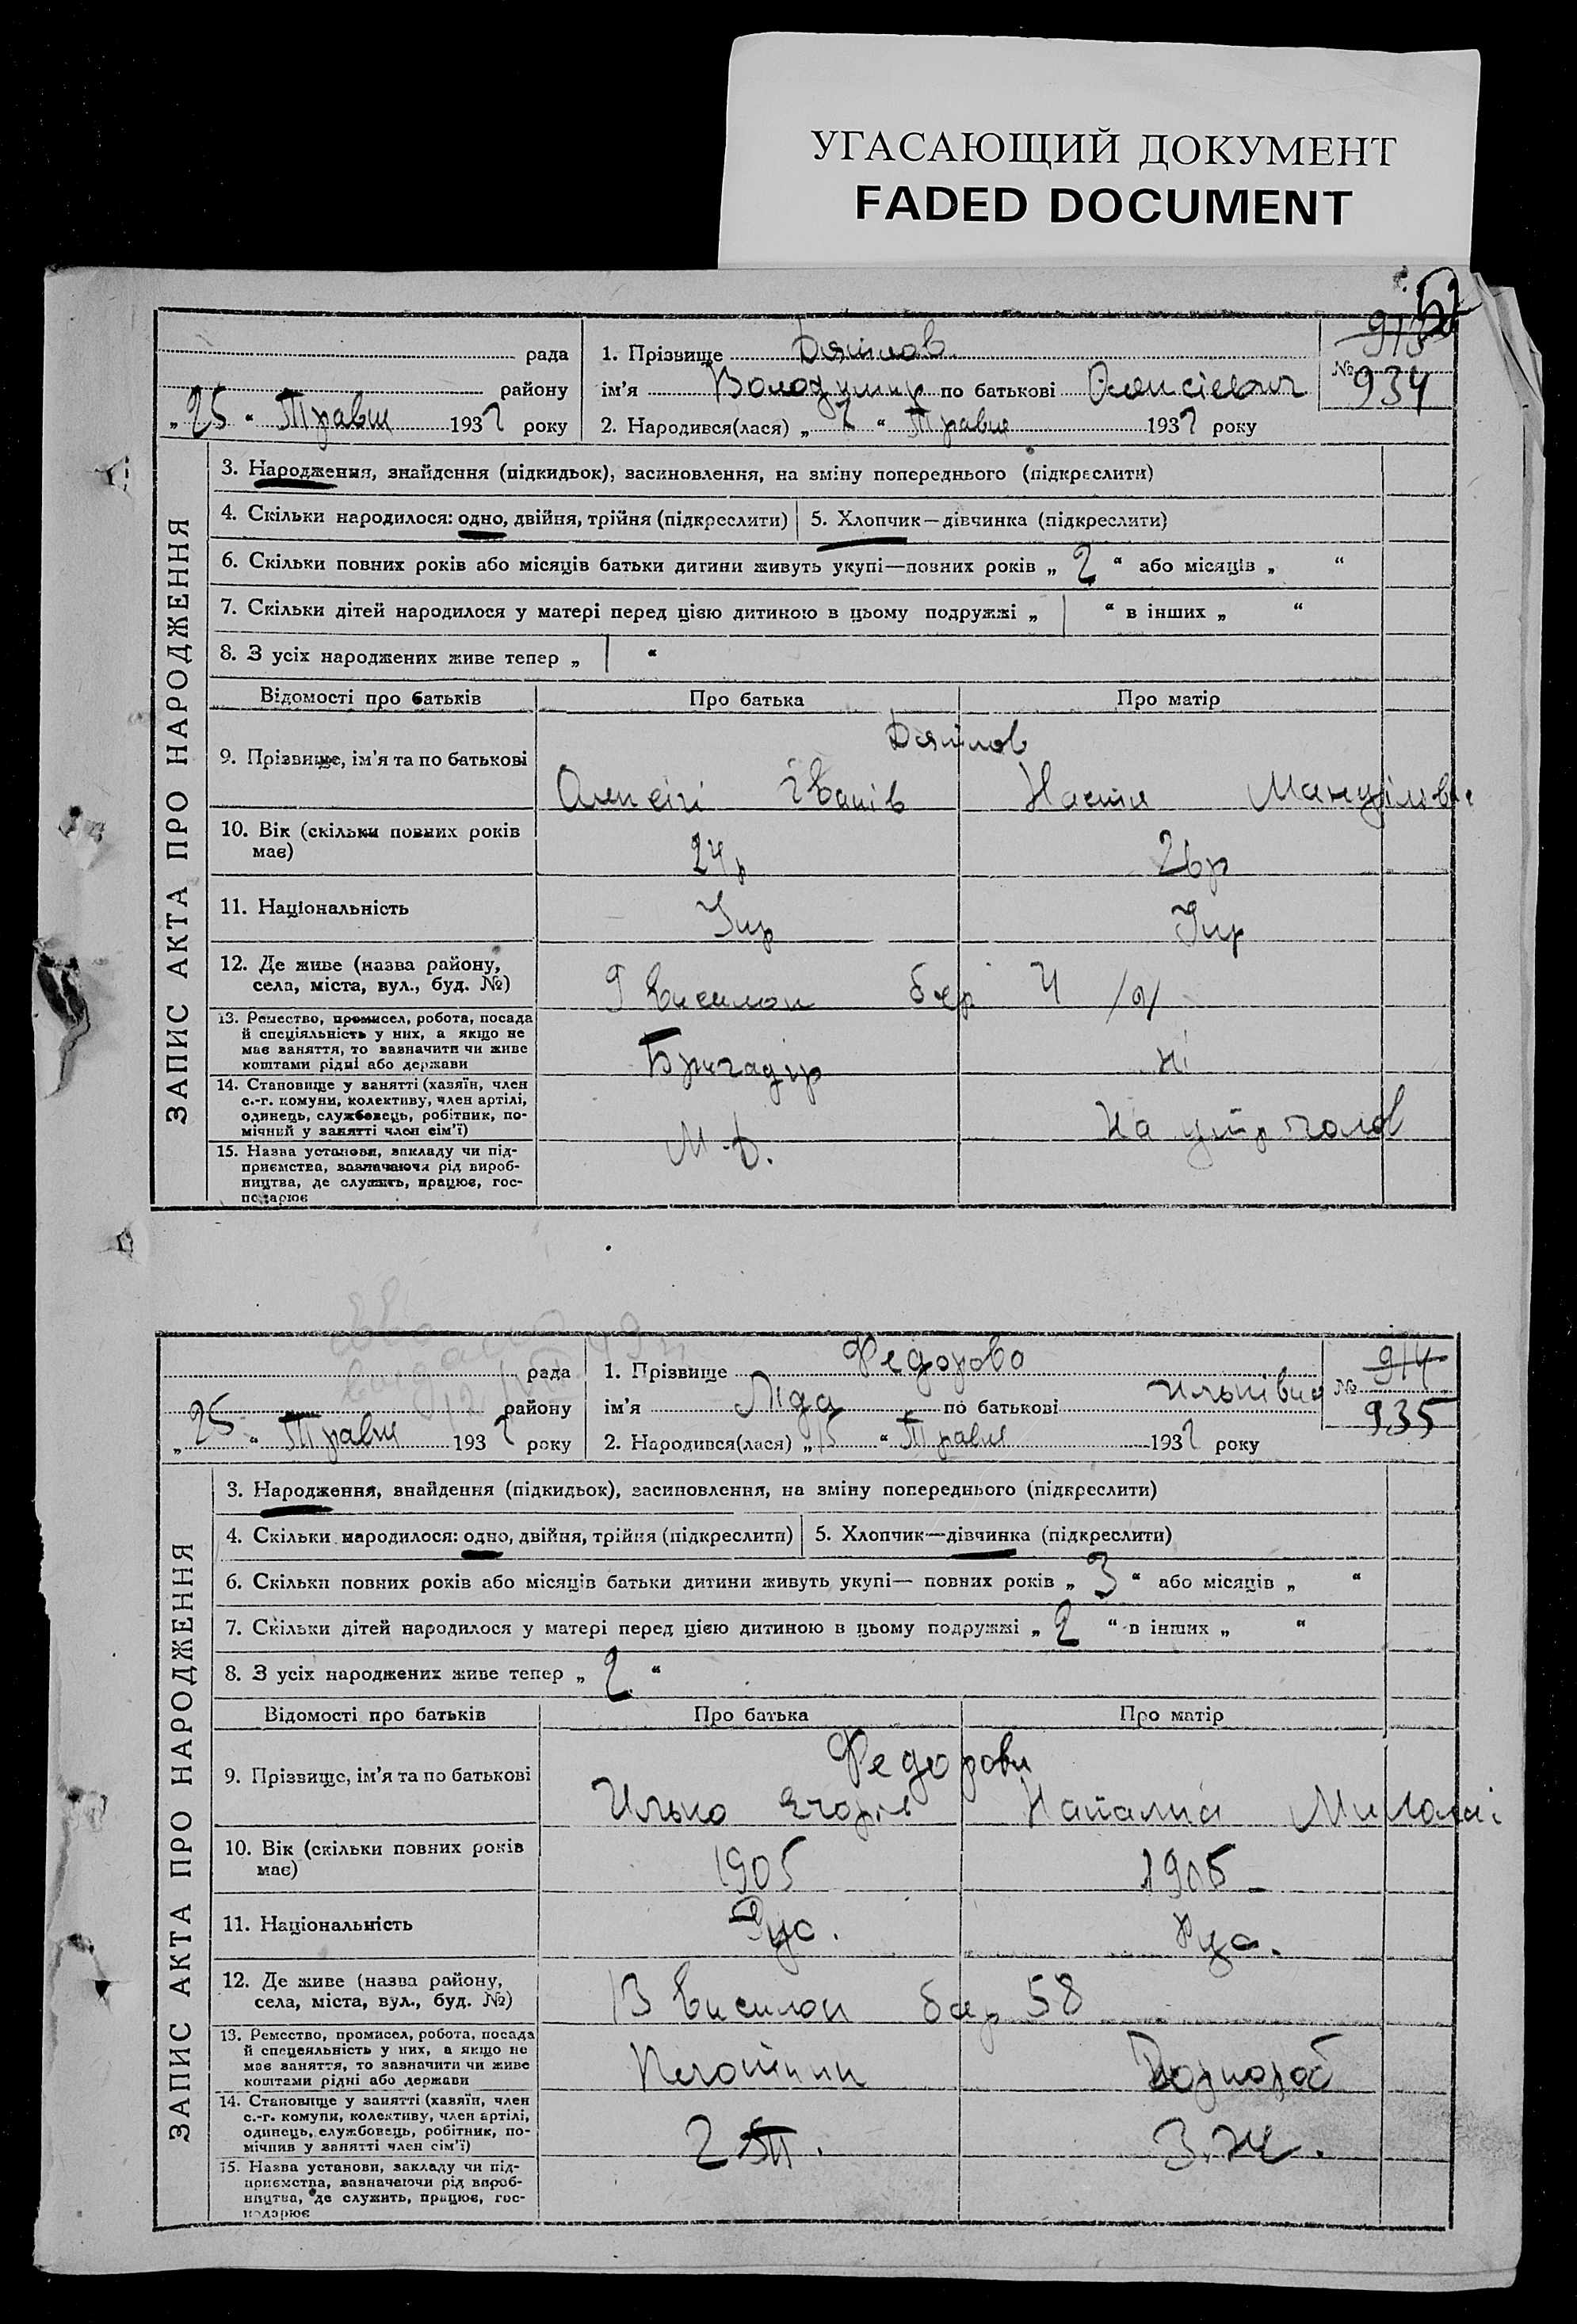 УГАСАЮЩИЙ ДОКУМЕНТ
FADED DOCUMENT
913
рада
району
„25“ Травня 1932 року
1. Прізвище Дятлов
ім'я Володимир по батькові Олексієвич
2. Народився(лася) „2“ Травня 1932 року
№ 934
ЗАПИС АКТА ПРО НАРОДЖЕННЯ
3. Народження, знайдення (підкидьок), засиновлення, на зміну попереднього (підкреслити)
4. Скільки народилося: одно, двійня, трійня (підкреслити)
5. Хлопчик—дівчинка (підкреслити)
6. Скільки повних років або місяців батьки дитини живуть укупі—повних років „2“ або місяців „ “
7. Скільки дітей народилося у матері перед цією дитиною в цьому подружжі „1 “ в інших „ “
8. З усіх народжених живе тепер „1 “
Відомості про батьків
Про батька
Про матір
9. Прізвище, ім'я та по батькові
Дятлов
Олексій Іванів
Настя
10. Вік (скільки повних років
має)
24р
26р
11. Національність
Укр
Укр
12. Де живе (назва району,
села, міста, вул., буд. №)
9 виселок бар 4
13. Ремество, промисел, робота, посада
й спеціяльність у них, а якщо не
має заняття, то зазначити чи живе
коштами рідні або держави
Бригадир
ні
14. Становище у занятті (хазяїн, член
с.-г. комуни, колективу, член артілі,
одинець, службовець, робітник, по-
мічний у занятті член сім'ї)
На утр чолов
15. Назва установи, закладу чи під-
приємства, зазначаючи рід вироб-
ництва, де служить, працює, гос-
подарює
рада
району
„25“ Травня 1932 року
1. Прізвище Федорова
ім'я Ліда по батькові Ильківна
2. Народився(лася) „15“ Травня 1932 року
914
№ 935
ЗАПИС АКТА ПРО НАРОДЖЕННЯ
3. Народження, знайдення (підкидьок), засиновлення, на зміну попереднього (підкреслити)
4. Скільки народилося: одно, двійня, трійня (підкреслити)
5. Хлопчик—дівчинка (підкреслити)
6. Скільки повних років або місяців батьки дитини живуть укупі— повних років „3“ або місяців „ “
7. Скільки дітей народилося у матері перед цією дитиною в цьому подружжі „2 “ в інших „ “
8. З усіх народжених живе тепер „2 “
Відомості про батьків
Про батька
Про матір
9. Прізвище, ім'я та по батькові
Федорови
Илько Єгорів
Наталія Миколаі
10. Вік (скільки повних років
має)
1905
1905
11. Національність
Рус.
Рус.
12. Де живе (назва району,
села, міста, вул., буд. №)
13 виселок бар 58
13. Ремество, промисел, робота, посада
й спецеяльність у них, а якщо не
має заняття, то зазначити чи живе
коштами рідні або держави
Чорнороб
14. Становище у занятті (хазяїн, член
с.-г. комуни, колективу, член артілі,
одинець, службовець, робітник, по-
мічнив у занятті член сім'ї)
15. Назва установи, закладу чи під-
приємства, зазначаючи рід вироб-
ництва, де служить, працює, гос-
подарює